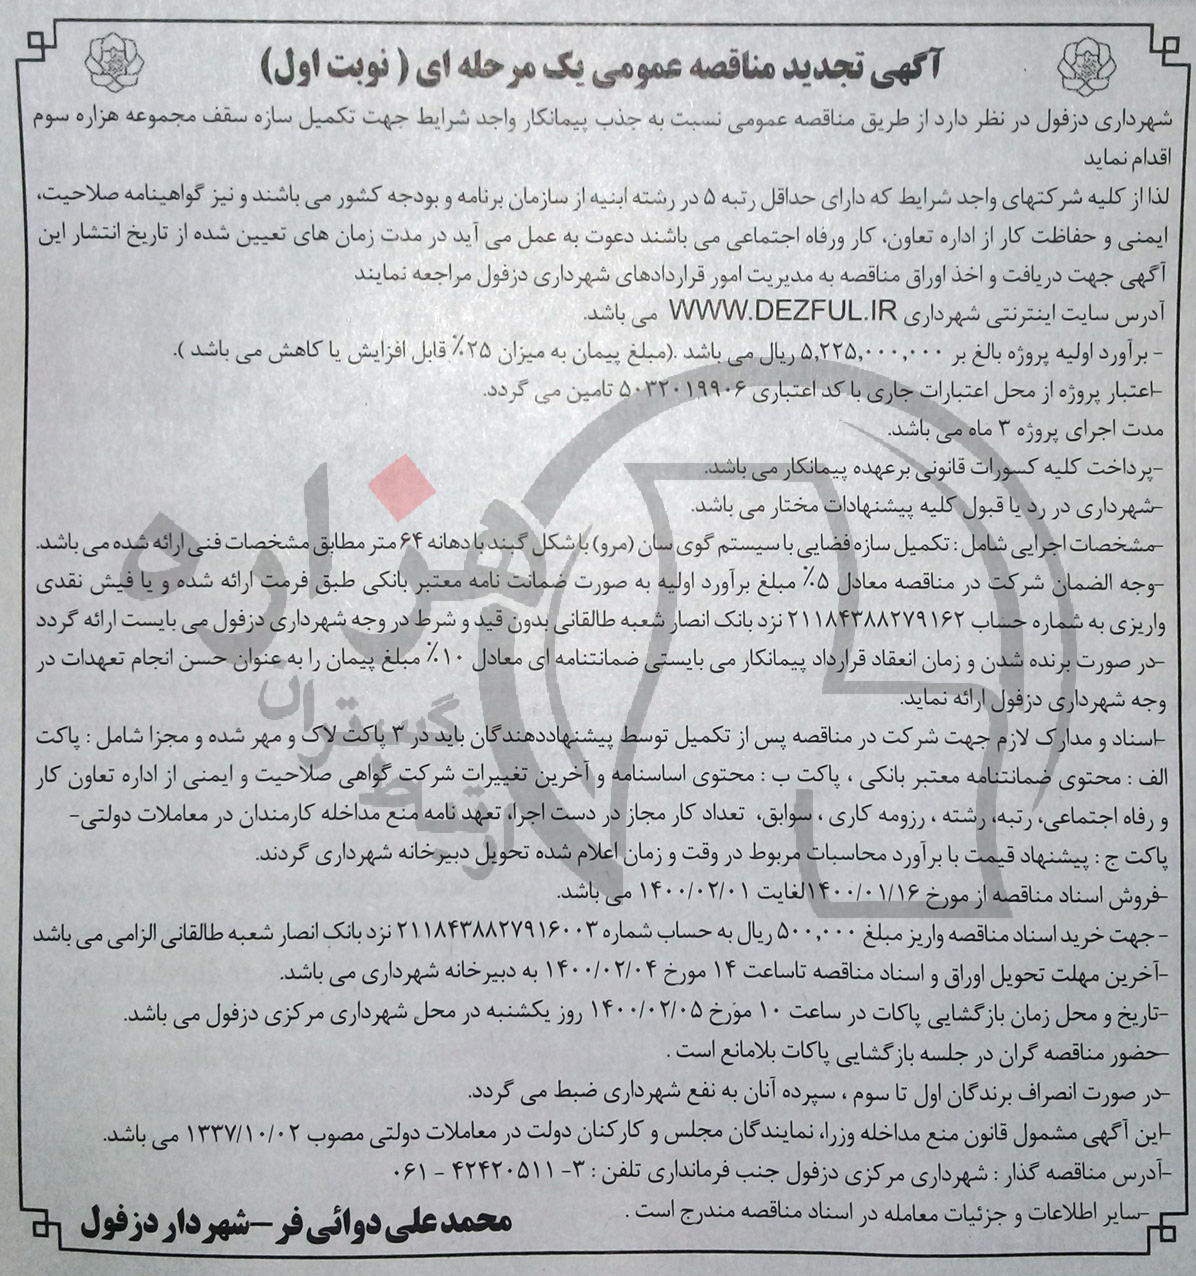 آگهی تجدید مناقصه عمومی یک مرحله ای ( نوبت اول)
شهرداری دزفول در نظر دارد از طریق مناقصه عمومی نسبت به جذب پیمانکار واجد شرایط جهت تکمیل سازه سقف مجموعه هزاره سوم
اقدام نماید
لذا از کلیه شرکتهای واجد شرایط که دارای حداقل رتبه ۵ در رشته ابنیه از سازمان برنامه و بودجه کشور می باشند و نیز گواهینامه صلاحیت،
ایمنی و حفاظت کار از اداره تعاون، کار ورفاه اجتماعی می باشند دعوت به عمل می آید در مدت زمان های تعیین شده از تاریخ انتشار این
آگهی جهت دریافت و اخذ اوراق مناقصه به مدیریت امور قراردادهای شهرداری دزفول مراجعه نمایند
آدرس سایت اینترنتی شهرداری WWW.DEZFUL.IR می باشد.
- برآورد اولیه پروژه بالغ بر ۵,۲۲۵,۰۰۰,۰۰۰ ریال می باشد .(مبلغ پیمان به میزان ۲۵٪ قابل افزایش یا کاهش می باشد ).
-اعتبار پروژه از محل اعتبارات جاری با کد اعتباری ۵۰۳۲۰۱۹۹۰۶ تامین می گردد.
مدت اجرای پروژه ۳ ماه می باشد.
-پرداخت کلیه کسورات قانونی برعهده پیمانکار می باشد.
-شهرداری در رد یا قبول کلیه پیشنهادات مختار می باشد.
-مشخصات اجرایی شامل : تکمیل سازه فضایی با سیستم گوی سان (مرو) با شکل گنبد با دهانه ۶۴ متر مطابق مشخصات فنی ارائه شده می باشد.
-وجه الضمان شرکت در مناقصه معادل ۵٪ مبلغ برآورد اولیه به صورت ضمانت نامه معتبر بانکی طبق فرمت ارائه شده و یا فیش نقدی
واریزی به شماره حساب ۲۱۱۸۴۳۸۸۲۷۹۱۶۲ نزد بانک انصار شعبه طالقانی بدون قید و شرط در وجه شهرداری دزفول می بایست ارائه گردد
-در صورت برنده شدن و زمان انعقاد قرارداد پیمانکار می بایستی ضمانتنامه ای معادل ۱۰٪ مبلغ پیمان را به عنوان حسن انجام تعهدات در
وجه شهرداری دزفول ارائه نماید.
-اسناد و مدارک لازم جهت شرکت در مناقصه پس از تکمیل توسط پیشنهاددهندگان باید در ۳ پاکت لاک و مهر شده و مجزا شامل : پاکت
الف : محتوی ضمانتنامه معتبر بانکی ، پاکت ب : محتوی اساسنامه و آخرین تغییرات شرکت گواهی صلاحیت و ایمنی از اداره تعاون کار
و رفاه اجتماعی، رتبه، رشته ، رزومه کاری ، سوابق، تعداد کار مجاز در دست اجرا، تعهد نامه منع مداخله کارمندان در معاملات دولتی-
پاکت ج : پیشنهاد قیمت با برآورد محاسبات مربوط در وقت و زمان اعلام شده تحویل دبیرخانه شهرداری گردند.
-فروش اسناد مناقصه از مورخ ۱۴۰۰/۰۱/۱۶لغایت ۱۴۰۰/۰۲/۰۱ می باشد.
- جهت خرید اسناد مناقصه واریز مبلغ ۵۰۰,۰۰۰ ریال به حساب شماره ۲۱۱۸۴۳۸۸۲۷۹۱۶۰۰۳ نزد بانک انصار شعبه طالقانی الزامی می باشد
-آخرین مهلت تحویل اوراق و اسناد مناقصه تاساعت ۱۴ مورخ ۱۴۰۰/۰۲/۰۴ به دبیرخانه شهرداری می باشد.
-تاریخ و محل زمان بازگشایی پاکات در ساعت ۱۰ مورخ ۱۴۰۰/۰۲/۰۵ روز یکشنبه در محل شهرداری مرکزی دزفول می باشد.
-حضور مناقصه گران در جلسه بازگشایی پاکات بلامانع است .
-در صورت انصراف برندگان اول تا سوم ، سپرده آنان به نفع شهرداری ضبط می گردد.
-این آگهی مشمول قانون منع مداخله وزرا، نمایندگان مجلس و کارکنان دولت در معاملات دولتی مصوب ۱۳۳۷/۱۰/۰۲ می باشد.
-آدرس مناقصه گذار : شهرداری مرکزی دزفول جنب فرمانداری تلفن : ۳- ۴۲۴۲۰۵۱۱ - ۰۶۱
-سایر اطلاعات و جزئیات معامله در اسناد مناقصه مندرج است .
محمدعلی دوائی فر-شهردار دزفول
هزاره
گستران
ارتباط